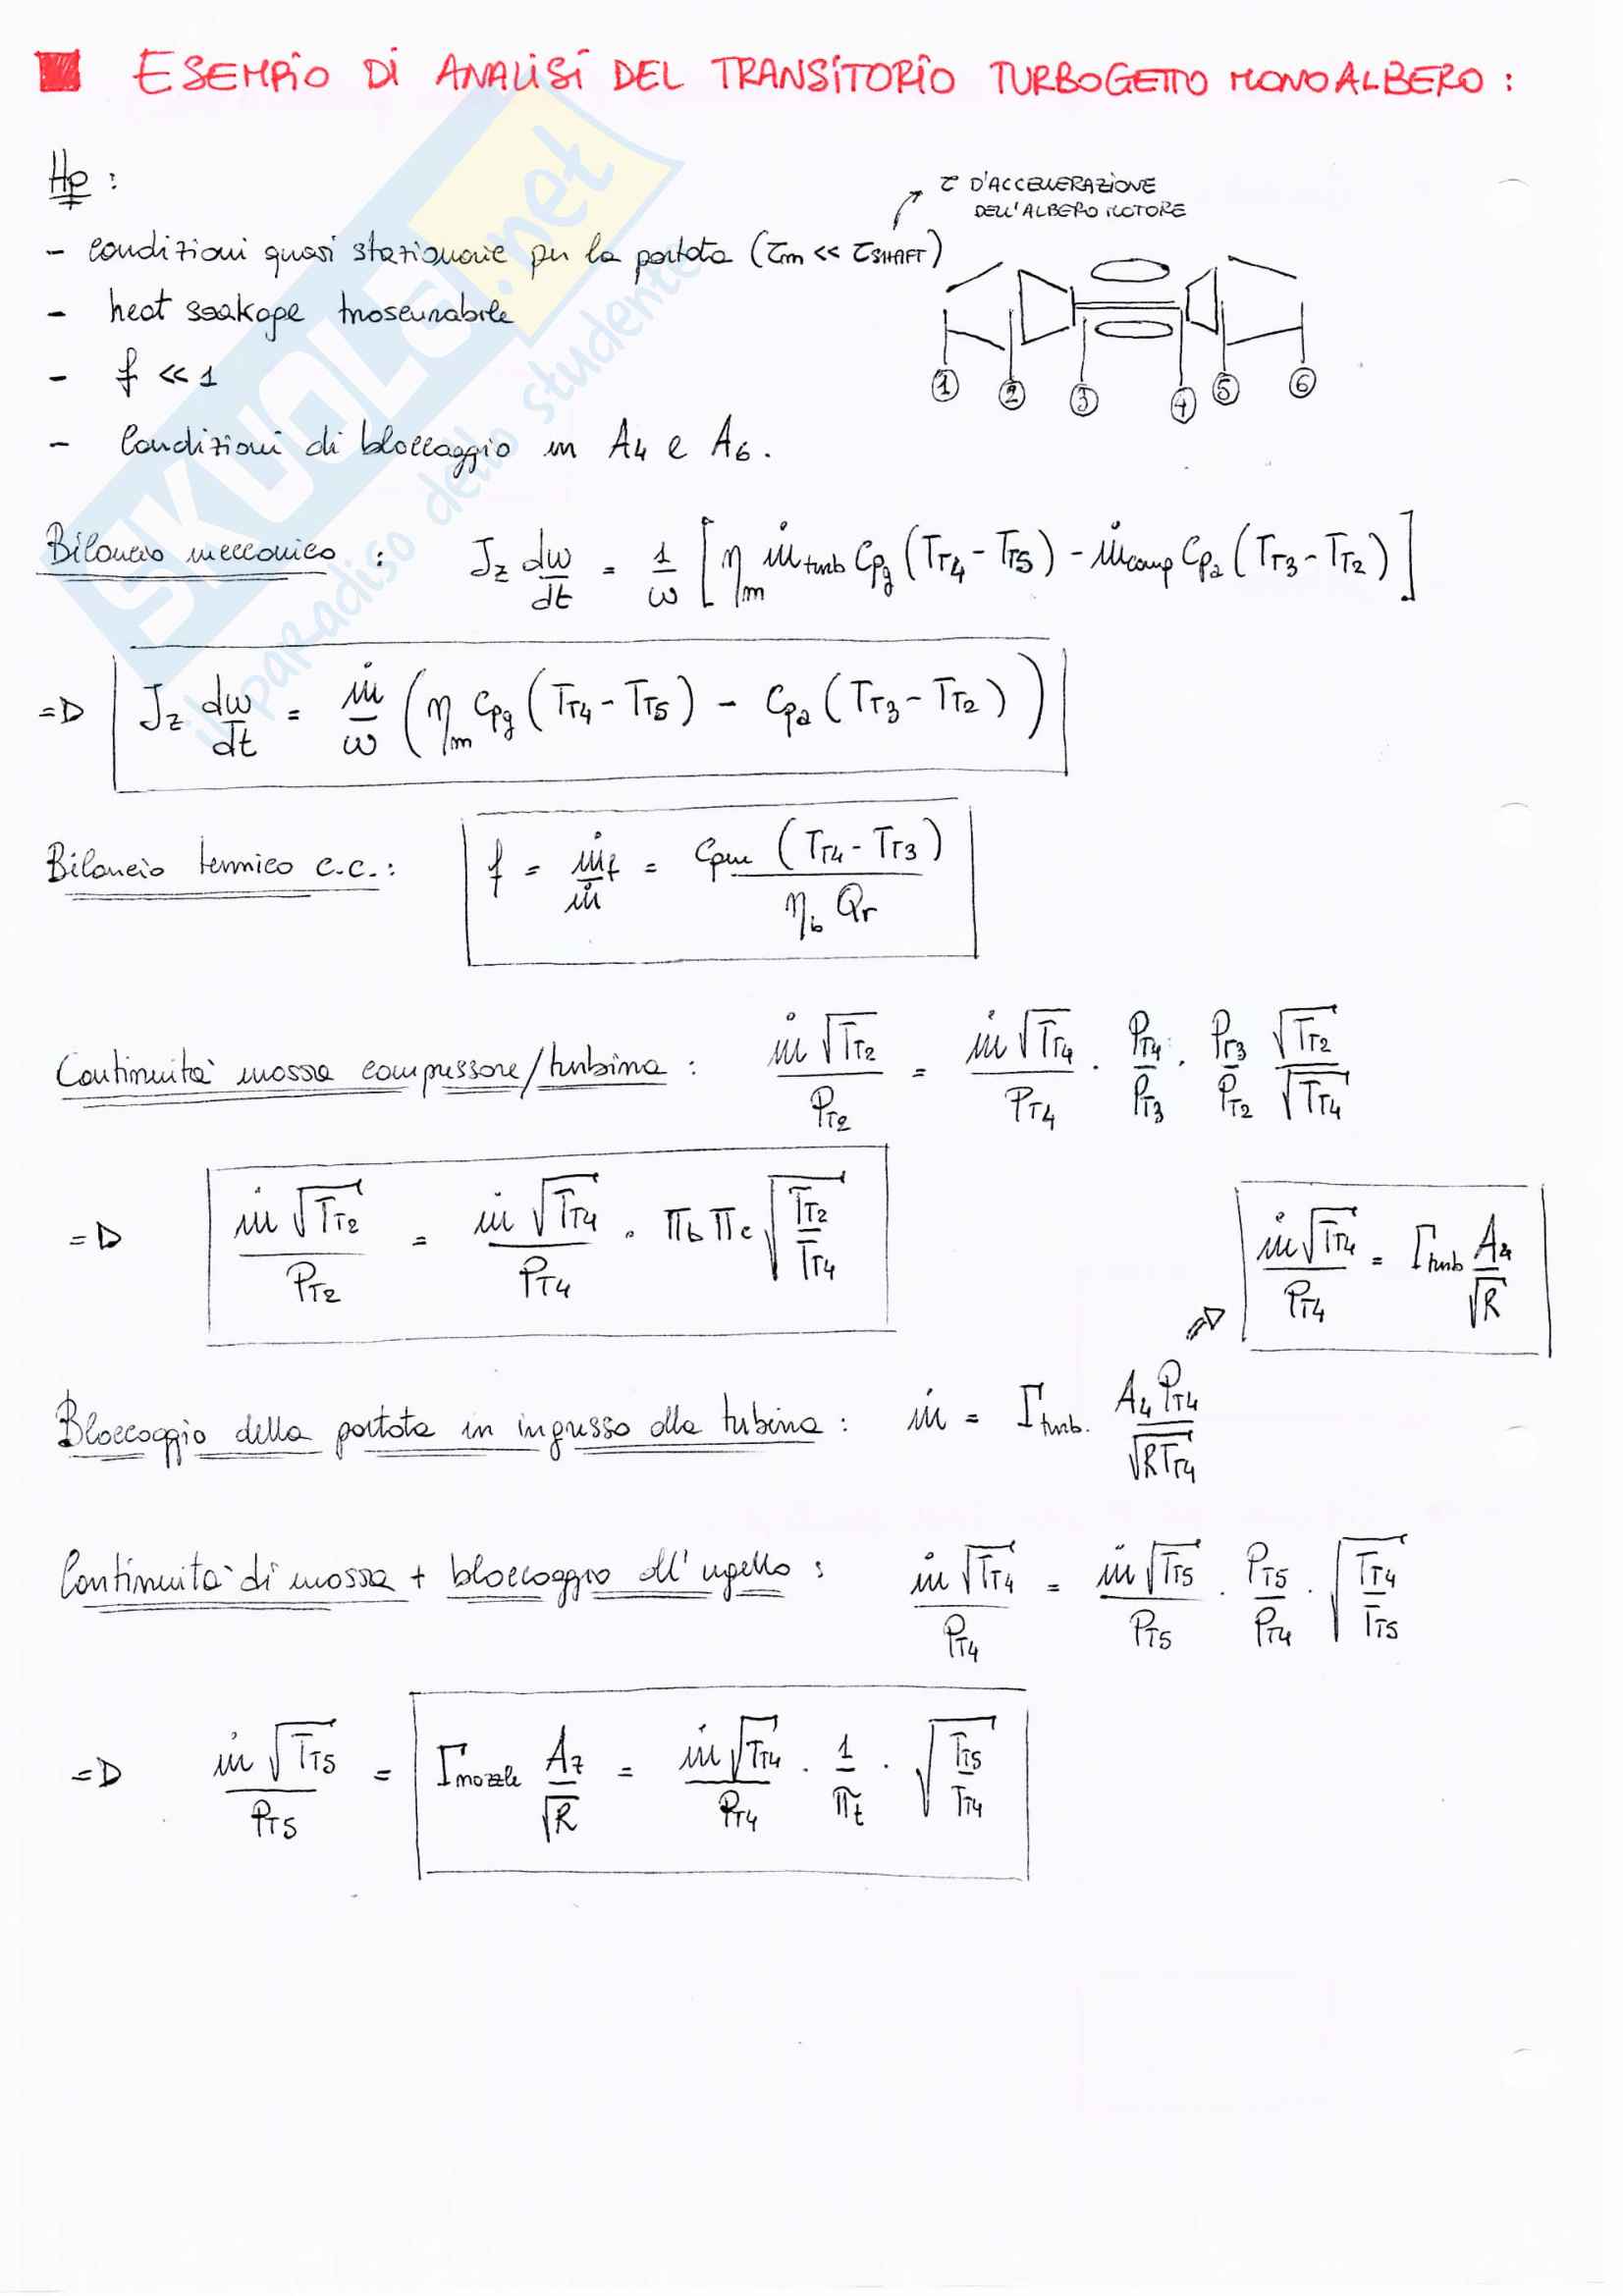 ESEMPIO DI ANALISI DEL TRANSITORIO TURBOGETTO MONOALBERO :
Hp :
τ D'ACCELLERAZIONE
DELL'ALBERO MOTORE
- condizioni quasi stazionarie per la portata (τm << τSHAFT)
- heat soakage trascurabile
- f << 1
- Condizioni di bloccaggio in A4 e A6.
1 2 3 4 5 6
Bilancio meccanico : Jz dω/dt = 1/ω [ηm ṁturb Cpg (TT4 - TT5) - ṁcomp Cpa (TT3 - TT2)]
=D Jz dω/dt = ṁ/ω (ηm Cpg (TT4 - TT5) - Cpa (TT3 - TT2))
Bilancio termico c.c. : f = ṁf/ṁ = Cpm (TT4 - TT3) / ηb Qr
Continuità massa compressore/turbina : ṁ√TT2/PT2 = ṁ√TT4/PT4 · PT4/PT3 · PT3/PT2 √TT2/√TT4
=D ṁ√TT2/PT2 = ṁ√TT4/PT4 · πb πc √(TT2/TT4)
ṁ√TT4/PT4 = Γturb A4/√R
Bloccaggio della portata in ingresso alla tubina : ṁ = Γturb. A4 PT4/√RTT4
Continuità di massa + bloccaggio all'ugello : ṁ√TT4/PT4 = ṁ√TT5/PT5 · PT5/PT4 · √(TT4/TT5)
=D ṁ√TT5/PT5 = Γnozzle A7/√R = ṁ√TT4/PT4 · 1/πt · √(TT5/TT4)
SKUOLA.net
il paradiso dello studente